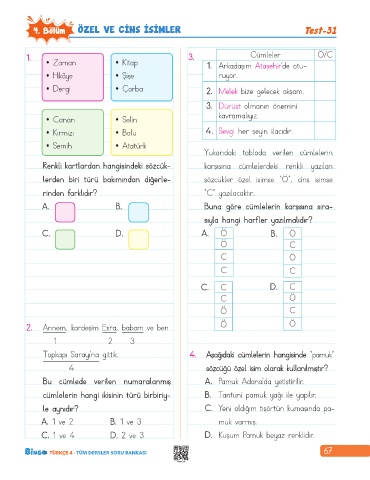 4. Bölüm ÖZEL VE CİNS İSİMLER Test-31
1.
• Zaman
• Hikâye
• Dergi
• Kitap
• Şişe
• Çorba
• Canan
• Kırmızı
• Semih
• Selin
• Bolu
• Atatürk
Renkli kartlardan hangisindeki sözcük-
lerden biri türü bakımından diğerle-
rinden farklıdır?
A. B.
C. D.
2. Annem, kardeşim Esra, babam ve ben
1 2 3
Topkapı Sarayı'na gittik.
4
Bu cümlede verilen numaralanmış
cümlelerin hangi ikisinin türü birbiriy-
le aynıdır?
A. 1 ve 2 B. 1 ve 3
C. 1 ve 4 D. 2 ve 3
3.
Cümleler Ö/C
1. Arkadaşım Ataşehir'de otu-
ruyor.
2. Melek bize gelecek akşam.
3. Dürüst olmanın önemini
kavramalıyız.
4. Sevgi her şeyin ilacıdır.
Yukarıdaki tabloda verilen cümlelerin
karşısına cümlelerdeki renkli yazılan
sözcükler özel isimse "Ö", cins isimse
"C" yazılacaktır.
Buna göre cümlelerin karşısına sıra-
sıyla hangi harfler yazılmalıdır?
A. Ö B. Ö
Ö C
C Ö
C C
C. C D. C
C Ö
Ö C
Ö Ö
4. Aşağıdaki cümlelerin hangisinde "pamuk"
sözcüğü özel isim olarak kullanılmıştır?
A. Pamuk Adana'da yetiştirilir.
B. Tantuni pamuk yağı ile yapılır.
C. Yeni aldığım tişörtün kumaşında pa-
muk varmış.
D. Kuşum Pamuk beyaz renklidir.
BİNGO TÜRKÇE 4 - TÜM DERSLER SORU BANKASI
67